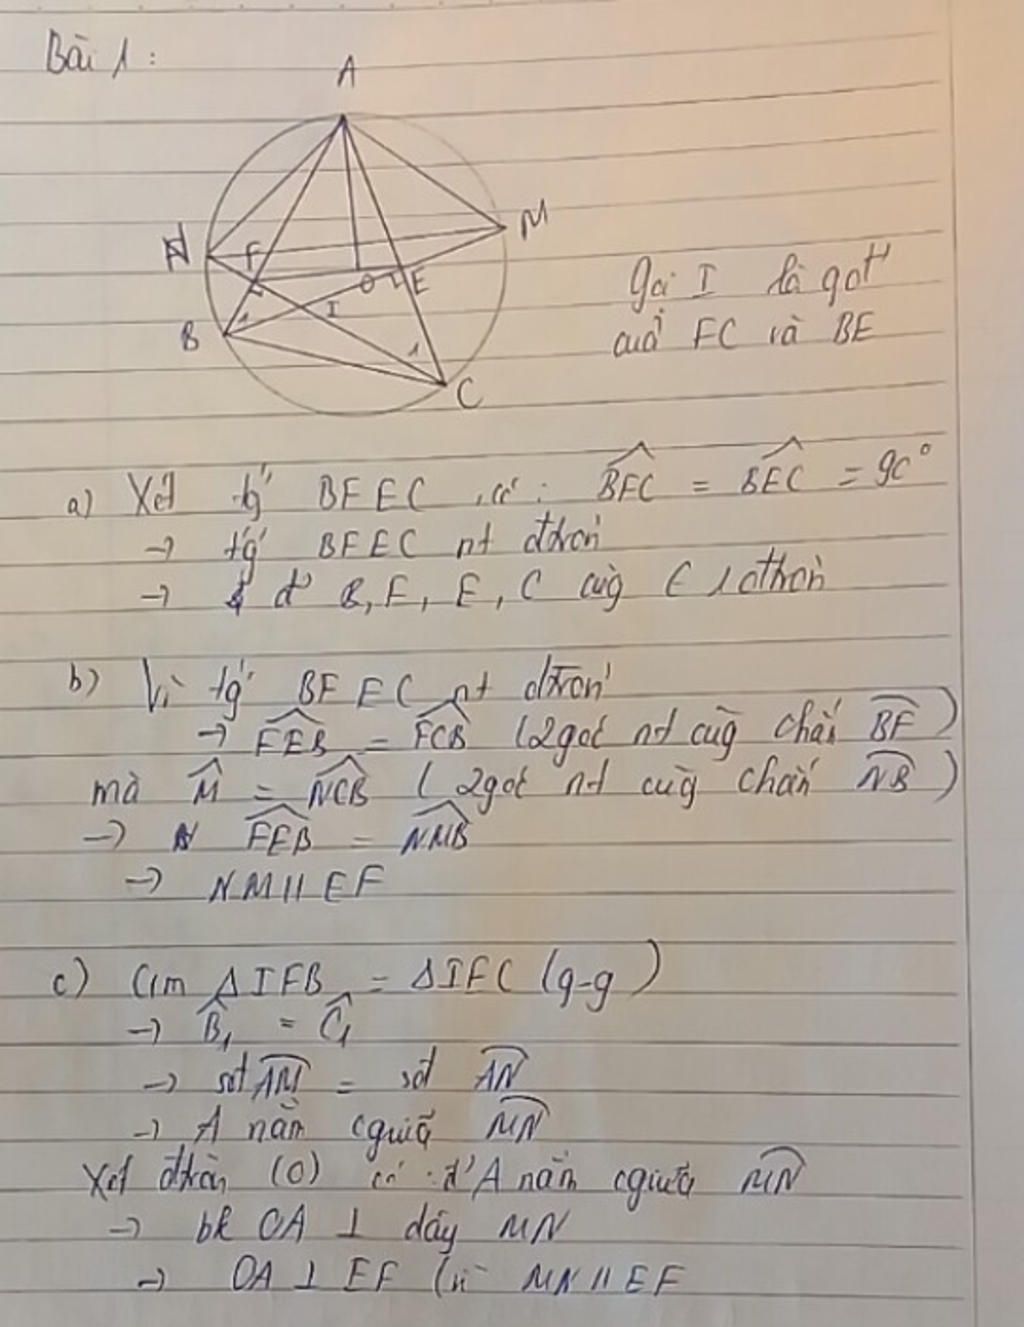 Bài 1:
A
N
F
M
O
E
I
B
1
1
C
Gọi I là gđ'
của FC và BE
a) Xét tg' BFEC có: BFC = BEC = 90°
→ tg' BFEC nt đtròn
→ 4 đ' B, F, E, C cùg ∈ 1 đtròn
b) Vì tg' BFEC nt đtròn
→ FEB = FCB (2 góc nt cùg chắn BF)
mà M = NCB (2 góc nt cùg chắn NB)
→ FEB = NMB
→ NM // EF
c) Cm ΔIFB = ΔIEC (g-g)
→ B₁ = C₁
→ sđ AM = sđ AN
→ A nằm cgiữa MN
Xét đtròn (O) có: đ' A nằm cgiữa MN
→ bk OA ⊥ dây MN
→ OA ⊥ EF (vì MN // EF